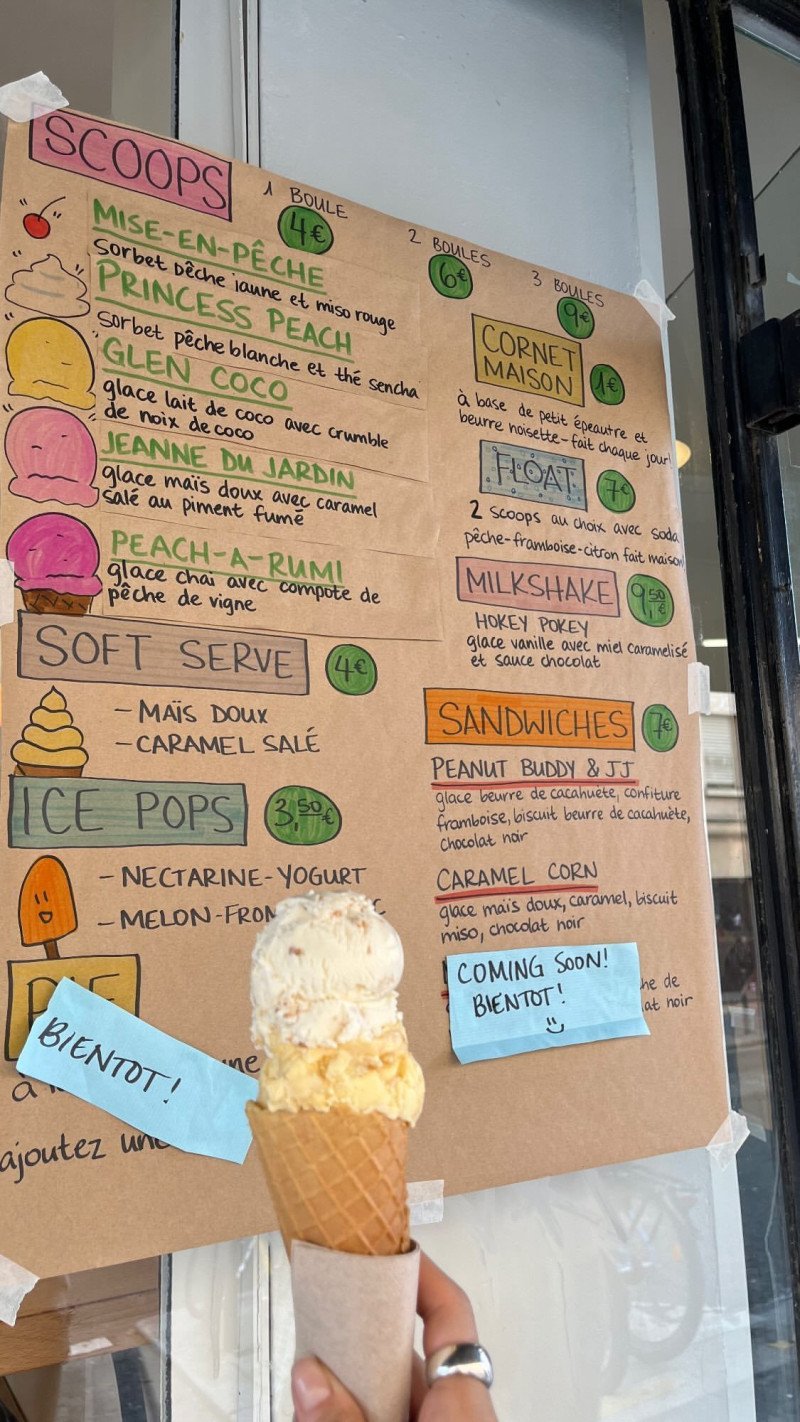 SCOOPS
1 BOULE
4€
2 BOULES
6€
3 BOULES
9€
MISE-EN-PÊCHE
sorbet pêche jaune et miso rouge
PRINCESS PEACH
sorbet pêche blanche et thé sencha
GLEN COCO
glace lait de coco avec crumble
de noix de coco
JEANNE DU JARDIN
glace maïs doux avec caramel
salé au piment fumé
PEACH-A-RUMI
glace chai avec compote de
pêche de vigne
SOFT SERVE
4€
- MAÏS DOUX
- CARAMEL SALÉ
ICE POPS
3,50€
- NECTARINE-YOGURT
- MELON-FRO
PIE
BIENTOT!
à
ne
ajoutez une
CORNET
MAISON
1€
à base de petit épeautre et
beurre noisette-fait chaque jour!
FLOAT
7€
2 scoops au choix avec soda
pêche-framboise-citron fait maison
MILKSHAKE
9,50€
HOKEY POKEY
glace vanille avec miel caramelisé
et sauce chocolat
SANDWICHES
7€
PEANUT BUDDY & JJ
glace beurre de cacahuète, confiture
framboise, biscuit beurre de cacahuète,
chocolat noir
CARAMEL CORN
glace maïs doux, caramel, biscuit
miso, chocolat noir
COMING SOON!
BIENTOT!
he de
at noir